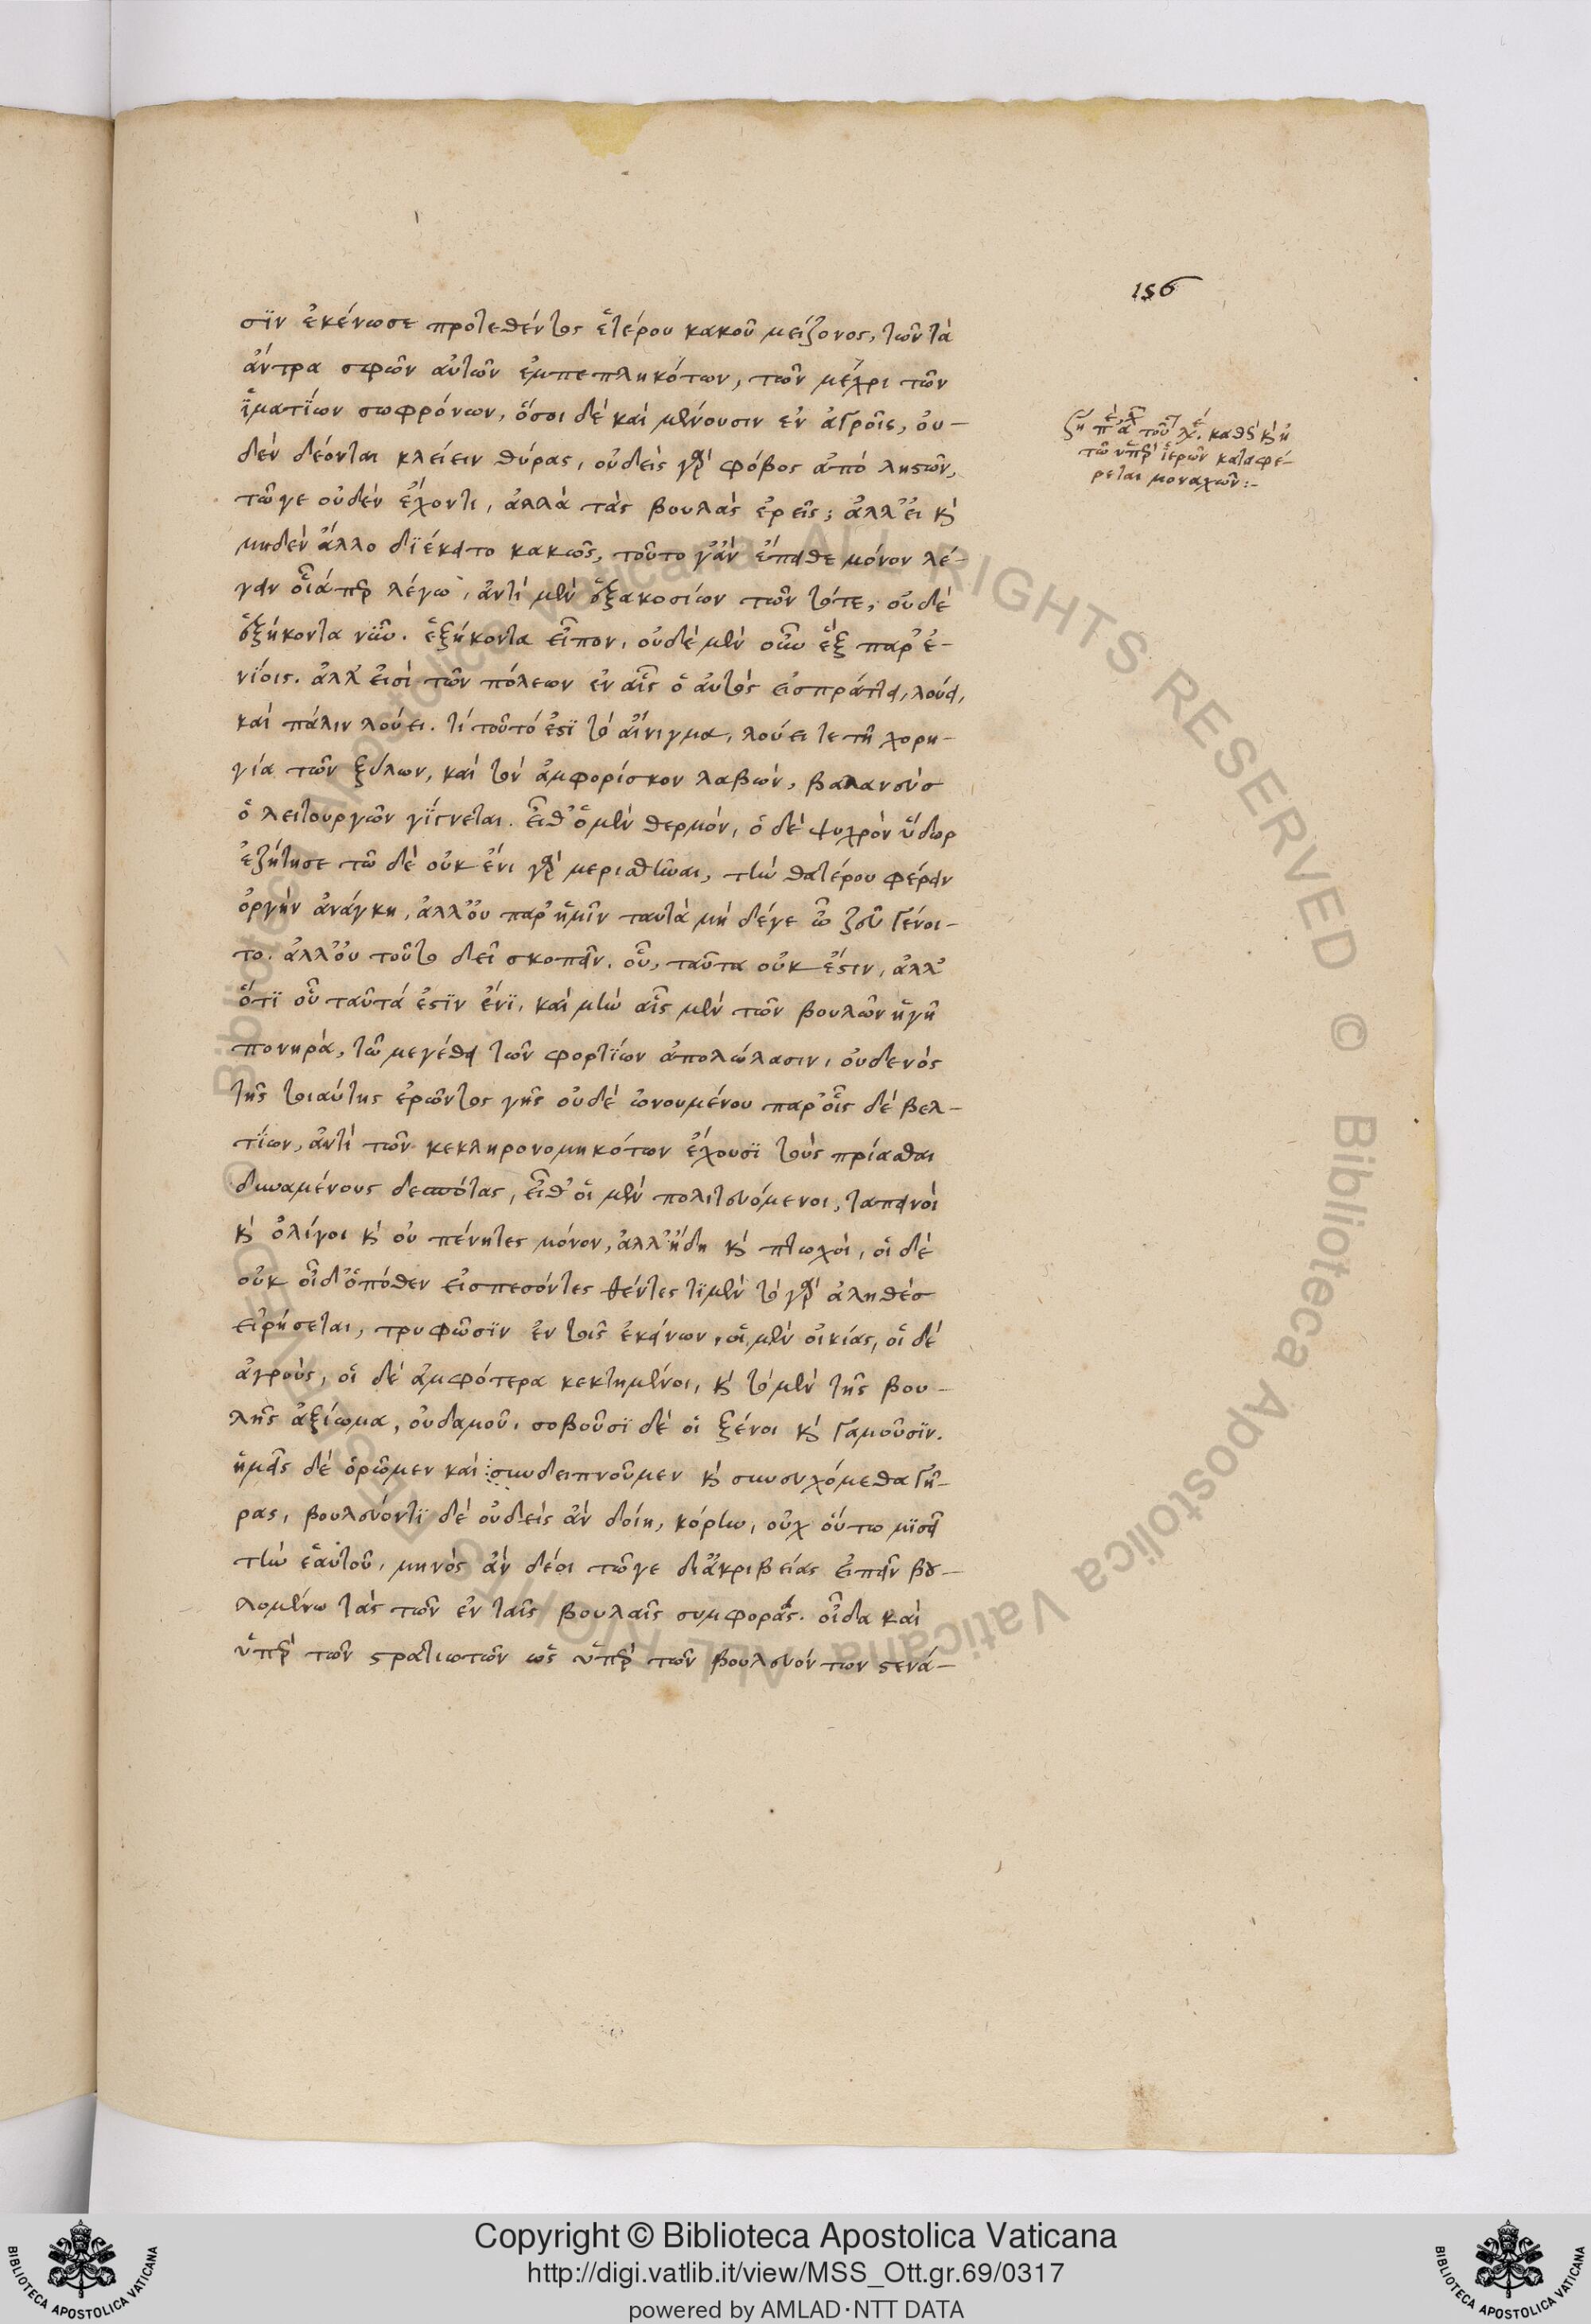 156
σϊν ἐκένωσε προτεθέντος ἑτέρου κακοῦ μείζονος, τῶν τὰ
ἄντρα σφῶν αὐτῶν ἐμπεπληκότων, τῶν μέχρι τῶν
ἱματίων σωφρόνων, ὅσοι δὲ καὶ μένουσιν ἐν ἀγροῖς, οὐ-
δὲν δέονται κλείειν θύρας, οὐδεὶς γὰρ φόβος ἀπὸ λῃστῶν,
τῶγε οὐδὲν ἔχοντι, ἀλλὰ τὰς βουλὰς ἐρεῖς; ἀλλ' εἰ καὶ
μηδὲν ἄλλο διέκειτο κακῶς, τοῦτο γ' ἂν ἔπαθε μόνον λέ-
γειν οἷάπερ λέγω, ἀντὶ μὲν ἑξακοσίων τῶν τότε, οὐδὲ
ἑξήκοντα νῦν. ἑξήκοντα εἶπον, οὐδὲ μὲν οὖν ἓξ παρ' ἐ-
νίοις. ἀλλ' εἰσὶ τῶν πόλεων ἐν αἷς ὁ αὐτὸς εἰσπράττει, λούει,
καὶ πάλιν λούει. τί τοῦτό ἐστϊ τὸ αἴνιγμα, λούει τε τῆ χορη-
γία τῶν ξύλων, καὶ τὸν ἀμφορίσκον λαβὼν, βαλανεὺς
ὁ λειτουργῶν γίγνεται. εἶθ' ὁ μὲν θερμὸν, ὁ δὲ ψυχρὸν ὕδωρ
ἐζήτησε τῶ δὲ οὐκ ἔνι γὰρ μερισθῆναι, τὴν θατέρου φέρειν
ὀργὴν ἀνάγκη, ἀλλ' οὐ παρ' ἡμῖν ταυτὰ μὴ δέγε ὦ ζεῦ γένοι-
το. ἀλλ' οὐ τοῦτο δεῖ σκοπεῖν. οὗ, ταῦτα οὐκ ἔστιν, ἀλλ'
ὅτϊ οὗ ταῦτά ἐστϊν ἔνϊ, καὶ μὴν αἷς μὲν τῶν βουλῶν ἡ γῆ
πονηρὰ, τῶ μεγέθει τῶν φορτίων ἀπολώλασιν, οὐδενὸς
τῆς τοιαύτης ἐρῶντος γῆς οὐδὲ ὠνουμένου παρ' οἷς δὲ βελ-
τίων, ἀντὶ τῶν κεκληρονομηκότων ἔχουσϊ τοὺς πρίασθαι
δυναμένους δεσπότας, εἶθ' οἱ μὲν πολιτευόμενοι, ταπεινοὶ
καὶ ὀλίγοι καὶ οὐ πένητες μόνον, ἀλλ' ἤδη καὶ πτωχοὶ, οἱ δὲ
οὐκ οἶδ' ὁπόθεν εἰσπεσόντες θέντες τϊμὴν τὸ γὰρ ἀληθὲς
εἰρήσεται, τρυφῶσϊν ἐν τοῖς ἐκείνων, οἱ μὲν οἰκίας, οἱ δὲ
ἀγροὺς, οἱ δὲ ἀμφότερα κεκτημένοι, καὶ τὸ μὲν τῆς βου-
λῆς ἀξίωμα, οὐδαμοῦ, σοβοῦσϊ δὲ οἱ ξένοι καὶ γαμοῦσϊν.
ἡμᾶς δὲ ὁρῶμεν καὶ συνδειπνοῦμεν καὶ συνευχόμεθα γῆ-
ρας, βουλεύοντϊ δὲ οὐδεὶς ἂν δοίη, κόρην, οὐχ οὕτω μϊσεῖ
τὴν ἑαυτοῦ, μηνὸς ἂν δέοι τῶγε δι' ἀκριβείας εἰπεῖν βου-
λομένω τὰς τῶν ἐν ταῖς βουλαῖς συμφοράς. οἶδα καὶ
ὑπὲρ τῶν στρατιωτῶν ὡς ὑπὲρ τῶν βουλευόντων στενά-
τῶν ὑπὲρ ἱερῶν καταφέ-
ρεται μοναχῶν:-
Copyright © Biblioteca Apostolica Vaticana
http://digi.vatlib.it/view/MSS_Ott.gr.69/0317
powered by AMLAD·NTT DATA
BIBLIOTECA APOSTOLICA VATICANA
BIBLIOTECA APOSTOLICA VATICANA
© Biblioteca Apostolica Vaticana ALL RIGHTS RESERVED © Biblioteca Apostolica Vaticana ALL RIGHTS RESERVED